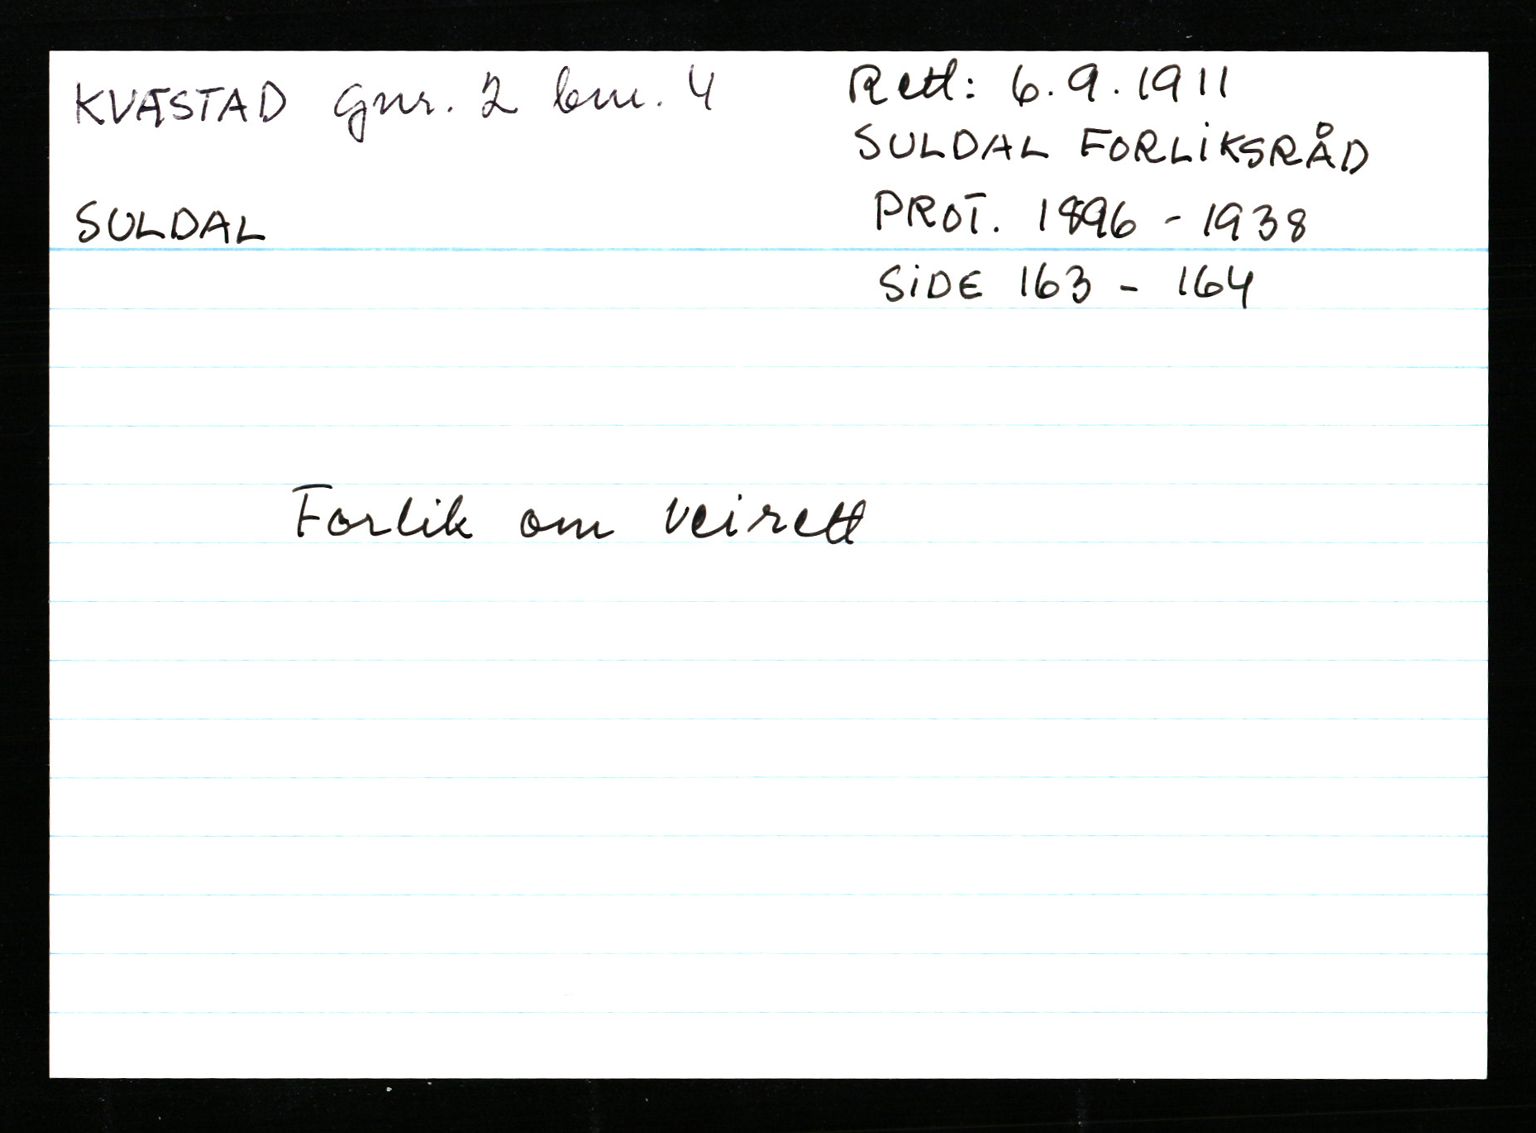 KVÆSTAD gnr. 2 bnr. 4
SULDAL
Rett: 6.9.1911
SULDAL FORLIKSRÅD
PROT. 1896 - 1938
SIDE 163 - 164
Forlik om veirett